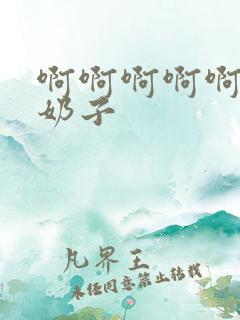 啊啊啊啊啊
奶子
凡界王
未经同意禁止转载